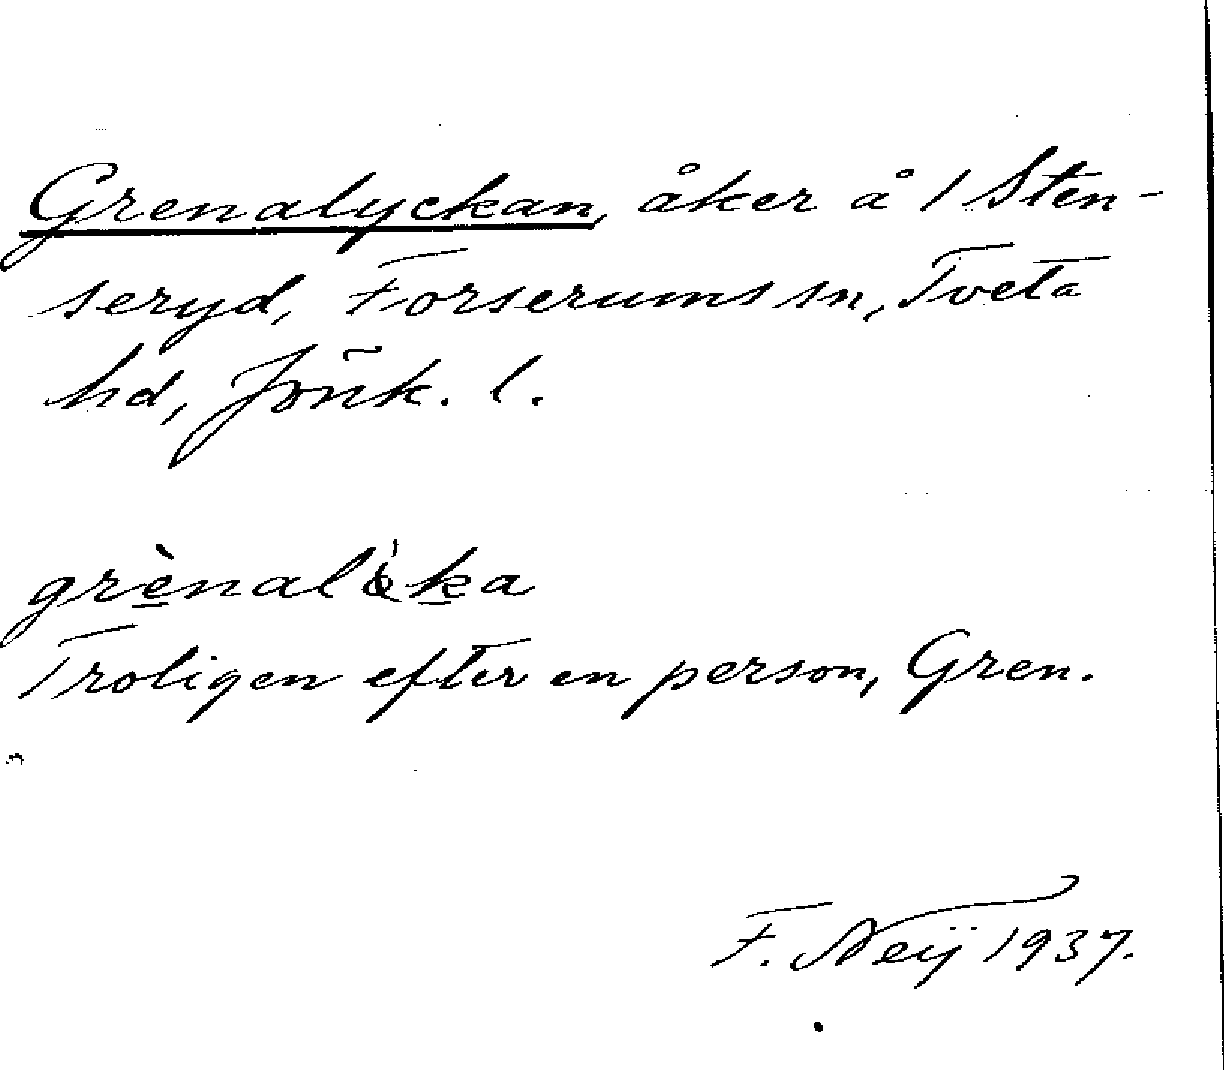 Grenalyckan, åker å 1 Sten-
seryd, Forserums sn, Tveta
hd, Jönk. l.
Troligen efter en person, Gren.
F. Neij 1937.